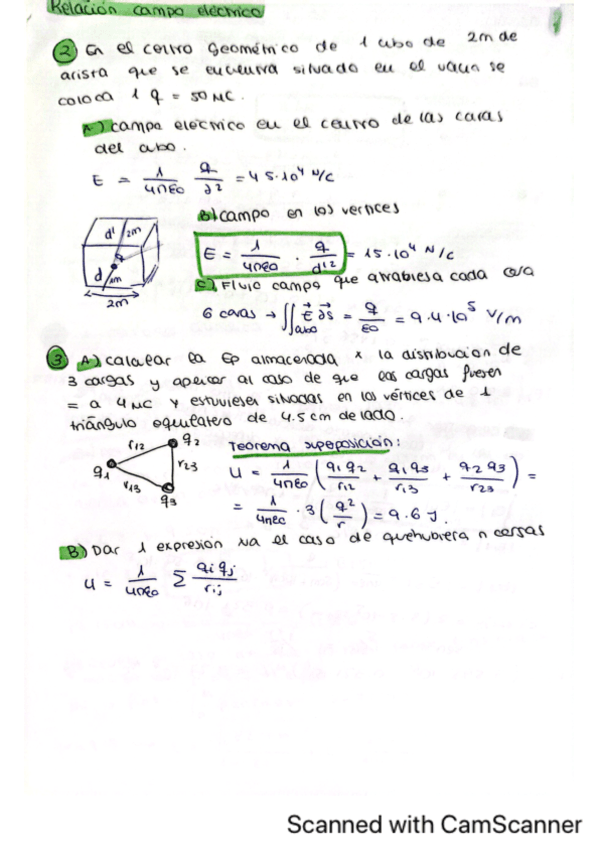 Relación campo eléctrico
1
② En el centro geométrico de 1 cubo de 2m de
arista que se encuentra situado en el vacío se
coloca 1 q = 50 μC.
A) campo eléctrico en el centro de las caras
del cubo.
E = 1/4πε₀ q/d² = 45·10⁴ N/C
B) campo en los vertices
d' 2m
q
d 1m
2m
E = 1/4πε₀ · q/d'² = 15·10⁴ N/C
C) Flujo campo que atrabiesa cada cara
6 caras → ∬cubo E⃗ dS⃗ = q/ε₀ = 9.4·10⁵ V/m
③ A) calcular la Ep almacenada x la distribución de
3 cargas y aplicar al caso de que las cargas fuesen
= a 4μC y estuviesen situadas en los vértices de 1
triángulo equilátero de 4.5 cm de lado.
r12 q2
q1 r23
r13 q3
Teorema superposición:
U = 1/4πε₀ (q1q2/r12 + q1q3/r13 + q2q3/r23) =
= 1/4πε₀ · 3(q²/r) = 9.6 J.
B) Dar 1 expresión xa el caso de que hubiera n cargas
U = 1/4πε₀ Σ qiqj/rij
Scanned with CamScanner